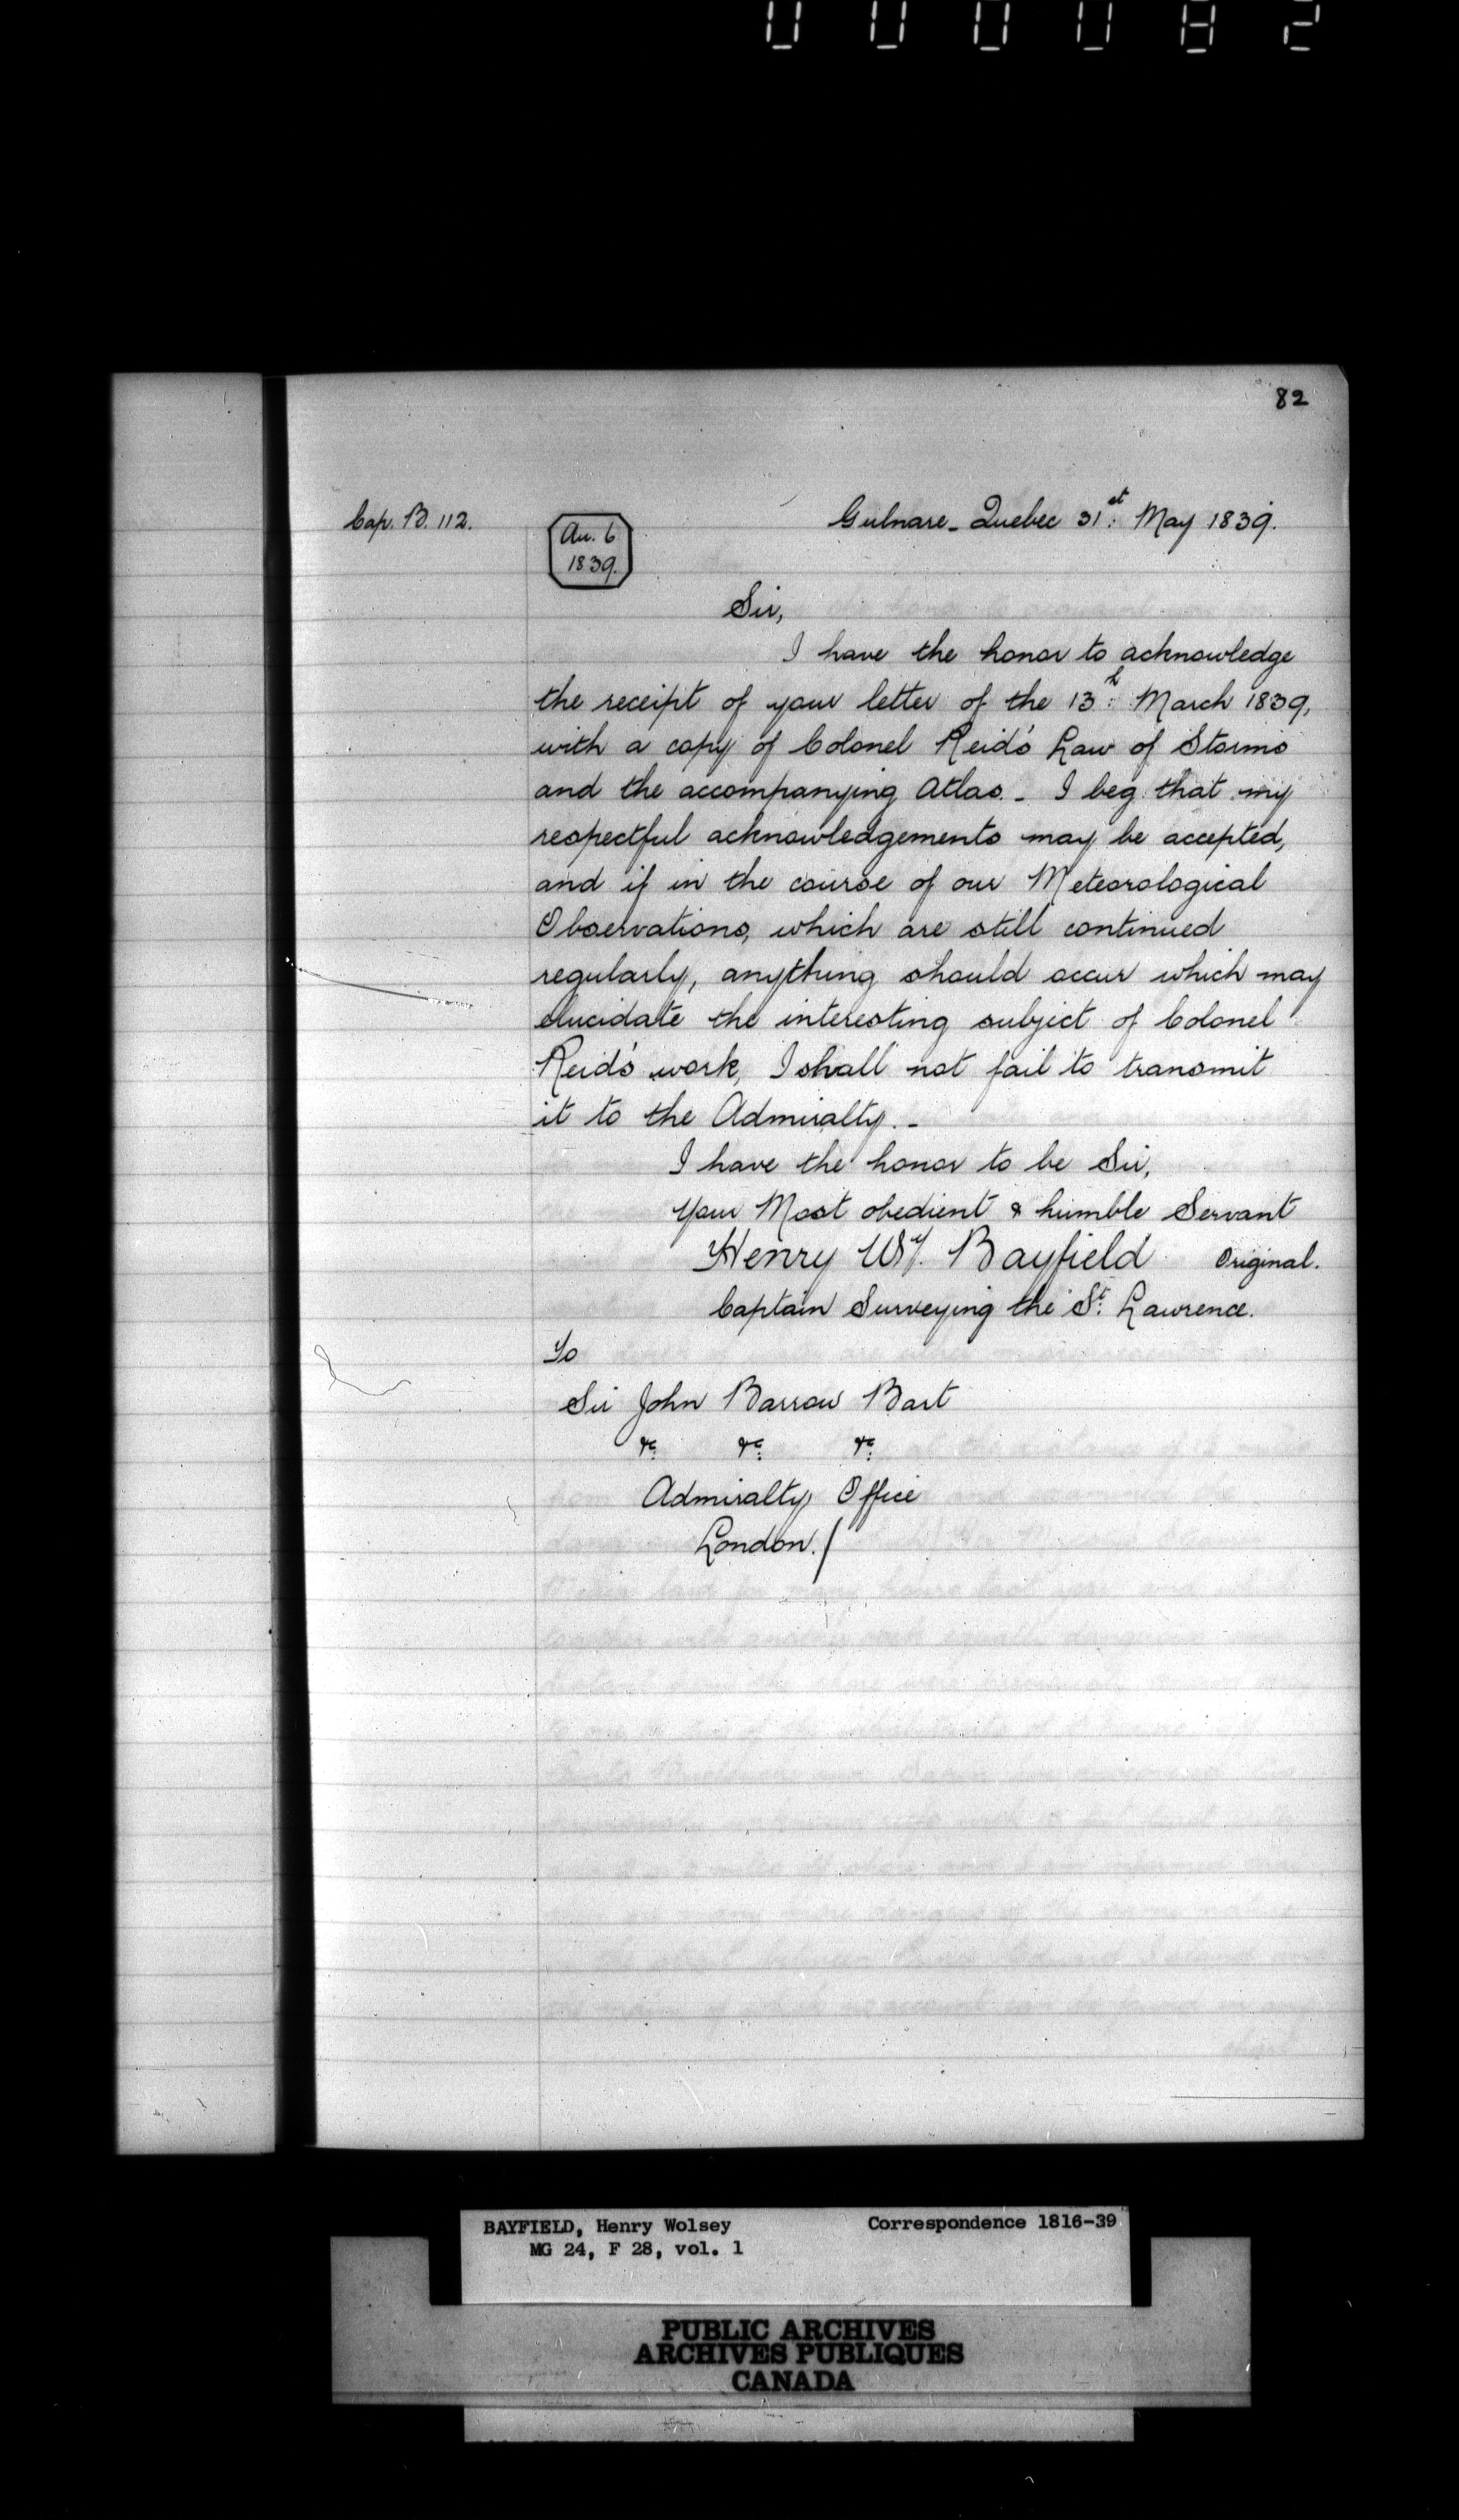 000082
82
Cap. B. 112.
Au. 6
1839.
Gulnare_ Quebec 31st: May 1839.
Sir,
I have the honor to acknowledge
the receipt of your letter of the 13h: March 1839,
with a copy of Colonel Reid's Law of Storms
and the accompanying Atlas._ I beg that my
respectful acknowledgements may be accepted,
and if in the course of our Meteorological
Observations, which are still continued
regularly, anything should occur which may
elucidate the interesting subject of Colonel
Reid's work, I shall not fail to transmit
it to the Admiralty._
I have the honor to be Sir,
Your Most obedient & humble Servant
Henry Wy. Bayfield Original.
Captain Surveying the St: Lawrence.
To
Sir John Barrow Bart
&c: &c: &c:
Admiralty Office
London./
BAYFIELD, Henry Wolsey Correspondence 1816-39
MG 24, F 28, vol. 1
PUBLIC ARCHIVES
ARCHIVES PUBLIQUES
CANADA